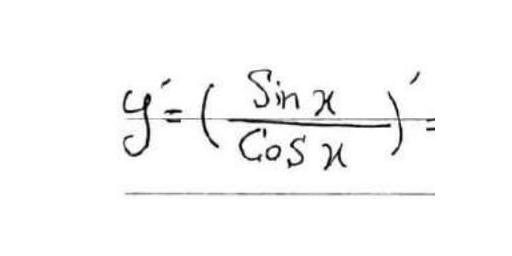 y' = ( Sin x / Cos x )' =